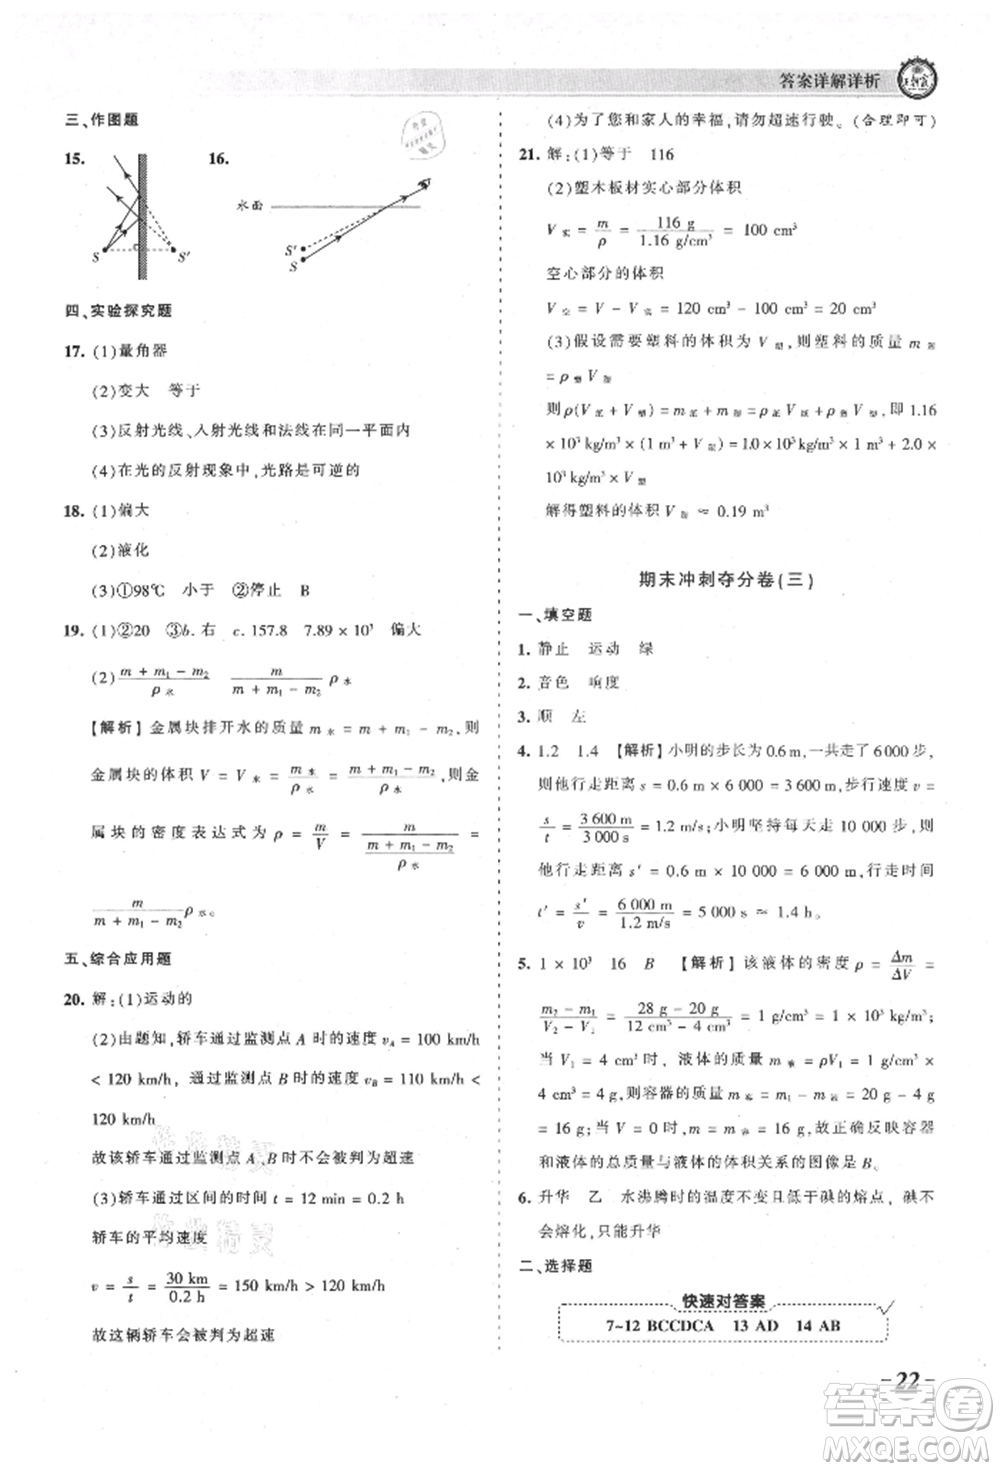 答案详解详析
三、作图题
15.
16.
水面
S
S'
S'
S
四、实验探究题
17. (1)量角器
(2)变大 等于
(3)反射光线、入射光线和法线在同一平面内
(4)在光的反射现象中,光路是可逆的
18. (1)偏大
(2)液化
(3)①98℃ 小于 ②停止 B
19. (1)②20 ③b. 右 c. 157.8 7.89 × 10³ 偏大
(2) (m + m₁ − m₂)/ρ水 m/(m + m₁ − m₂) ρ水
【解析】金属块排开水的质量 m水 = m + m₁ − m₂,则
金属块的体积 V = V水 = m水/ρ水 = (m + m₁ − m₂)/ρ水,则金
属块的密度表达式为 ρ = m/V = m/((m + m₁ − m₂)/ρ水) =
m/(m + m₁ − m₂) ρ水。
五、综合应用题
20. 解:(1)运动的
(2)由题知,轿车通过监测点 A 时的速度 vA = 100 km/h
< 120 km/h,通过监测点 B 时的速度 vB = 110 km/h <
120 km/h
故该轿车通过监测点 A、B 时不会被判为超速
(3)轿车通过区间的时间 t = 12 min = 0.2 h
轿车的平均速度
v = s/t = 30 km/0.2 h = 150 km/h > 120 km/h
故这辆轿车会被判为超速
(4)为了您和家人的幸福,请勿超速行驶。(合理即可)
21. 解:(1)等于 116
(2)塑木板材实心部分体积
V实 = m/ρ = 116 g/1.16 g/cm³ = 100 cm³
空心部分的体积
V空 = V − V实 = 120 cm³ − 100 cm³ = 20 cm³
(3)假设需要塑料的体积为 V塑,则塑料的质量 m塑
= ρ塑 V塑
则 ρ(V + V塑) = m + m塑 = ρ V + ρ塑 V塑,即 1.16
× 10³ kg/m³ × (1 m³ + V塑) = 1.0 × 10³ kg/m³ × 1 m³ + 2.0 ×
10³ kg/m³ × V塑
解得塑料的体积 V塑 ≈ 0.19 m³
期末冲刺夺分卷(三)
一、填空题
1. 静止 运动 绿
2. 音色 响度
3. 顺 左
4. 1.2 1.4 【解析】小明的步长为 0.6 m,一共走了 6 000 步,
则他行走距离 s = 0.6 m × 6 000 = 3 600 m,步行速度 v =
s/t = 3 600 m/3 000 s = 1.2 m/s;小明坚持每天走 10 000 步,则
他行走距离 s' = 0.6 m × 10 000 = 6 000 m,行走时间
t' = s'/v = 6 000 m/1.2 m/s = 5 000 s ≈ 1.4 h。
5. 1 × 10³ 16 B 【解析】该液体的密度 ρ = Δm/ΔV =
(m₂ − m₁)/(V₂ − V₁) = (28 g − 20 g)/(12 cm³ − 4 cm³) = 1 g/cm³ = 1 × 10³ kg/m³;
当 V₁ = 4 cm³ 时,液体的质量 m液 = ρV₁ = 1 g/cm³ ×
4 cm³ = 4 g,则容器的质量 m容 = m₁ − m液 = 20 g −
4 g = 16 g;当 V = 0 时,m液 = 0,故正确反映容器
和液体的总质量与液体的体积关系的图像是 B。
6. 升华 乙 水沸腾时的温度不变且低于碘的熔点,碘不
会熔化,只能升华
二、选择题
快速对答案
7~12 BCCDCA 13 AD 14 AB
- 22 -
答案卷
MXQE.COM